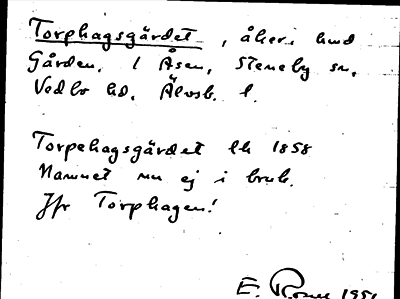 Torphagsgärdet, åker i hmd
Gården, 1 Åsen, Steneby sn,
Vedbo hd, Älvsb. l.
Torpehagsgärdet lh 1858
Namnet nu ej i bruk.
Jfr Torphagen!
E. 1951